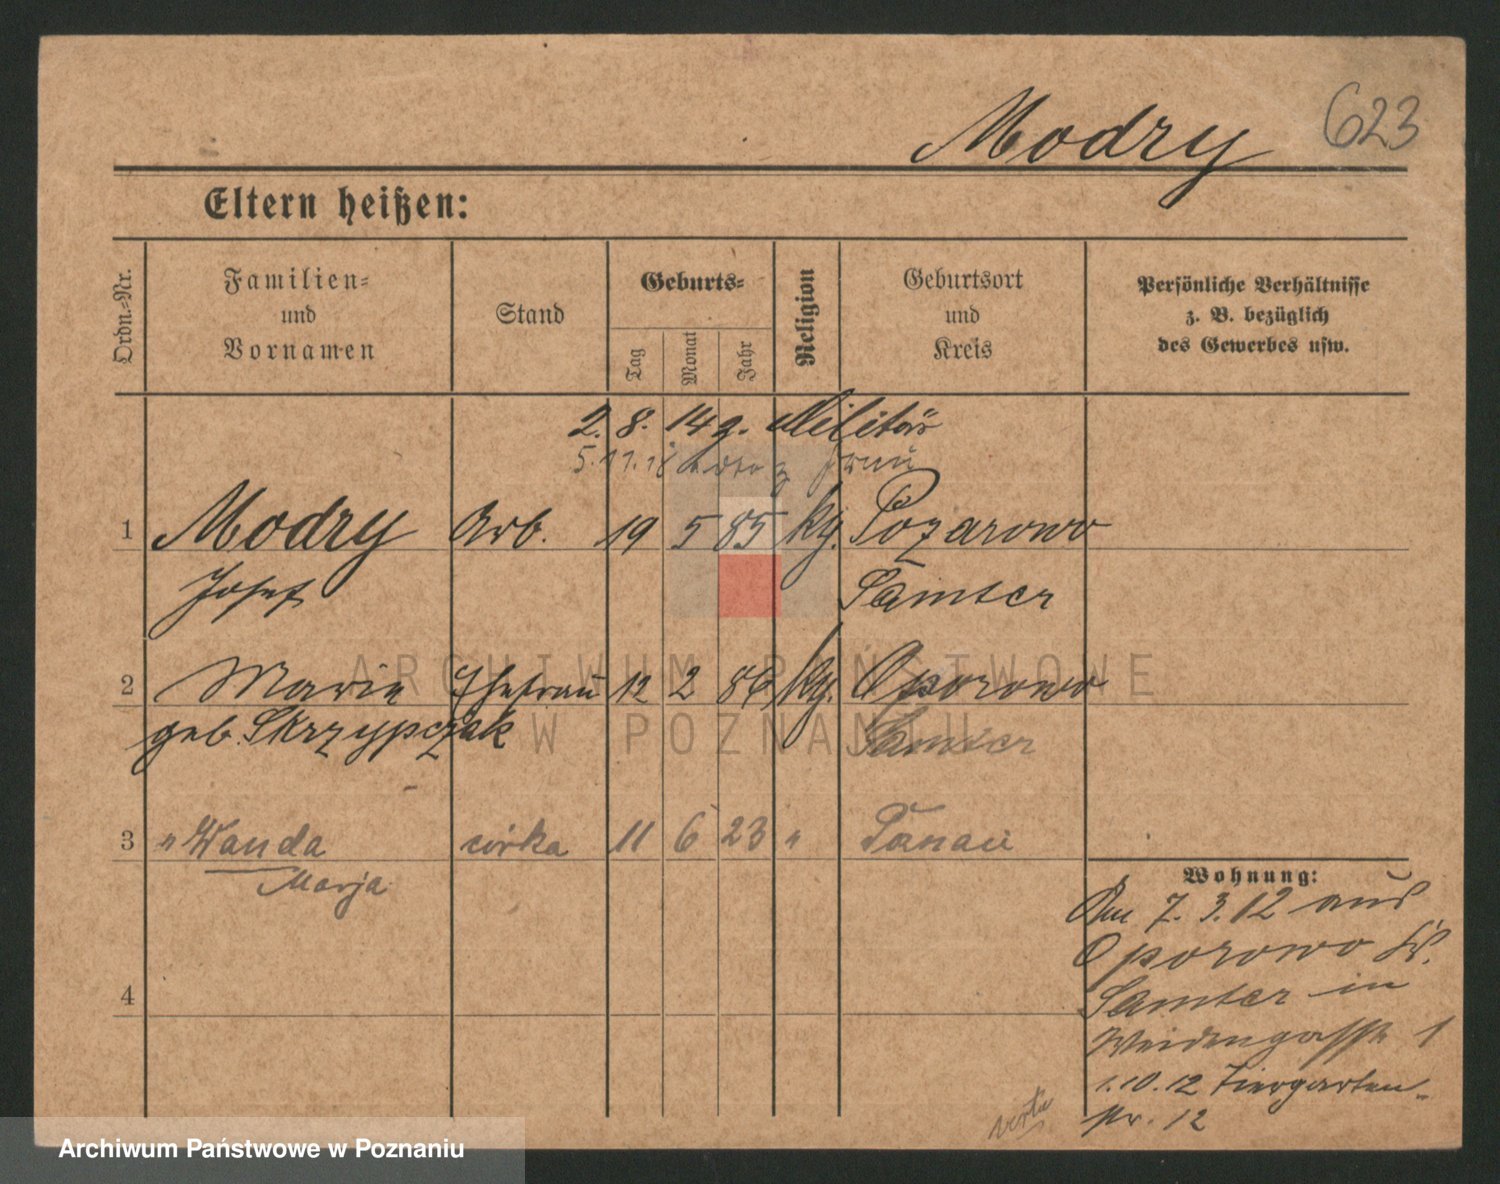 Modry 623
Eltern heißen:
Ordn.-Nr.
Familien-
und
Vornamen
Stand
Geburts-
Tag
Monat
Jahr
Religion
Geburtsort
und
Kreis
Persönliche Verhältnisse
z. B. bezüglich
des Gewerbes usw.
2. 8. 14 z. Militär
5. 11. 18
1 Modry Arb. 19 5 85 kg. Pozarowo
Josef Samter
2 Marie Ehefrau 12 2 86 kg. Oporowo
geb. Skrzypczak Samter
3 " Wanda córka 11 6 23 "
Marja
Wohnung:
Am 7. 3. 12 aus
Oporowo Kr.
Samter in
Weidengasse 1
1. 10. 12 Tiergarten-
str. 12
4
verte
ARCHIWUM PAŃSTWOWE
W POZNANIU
Archiwum Państwowe w Poznaniu